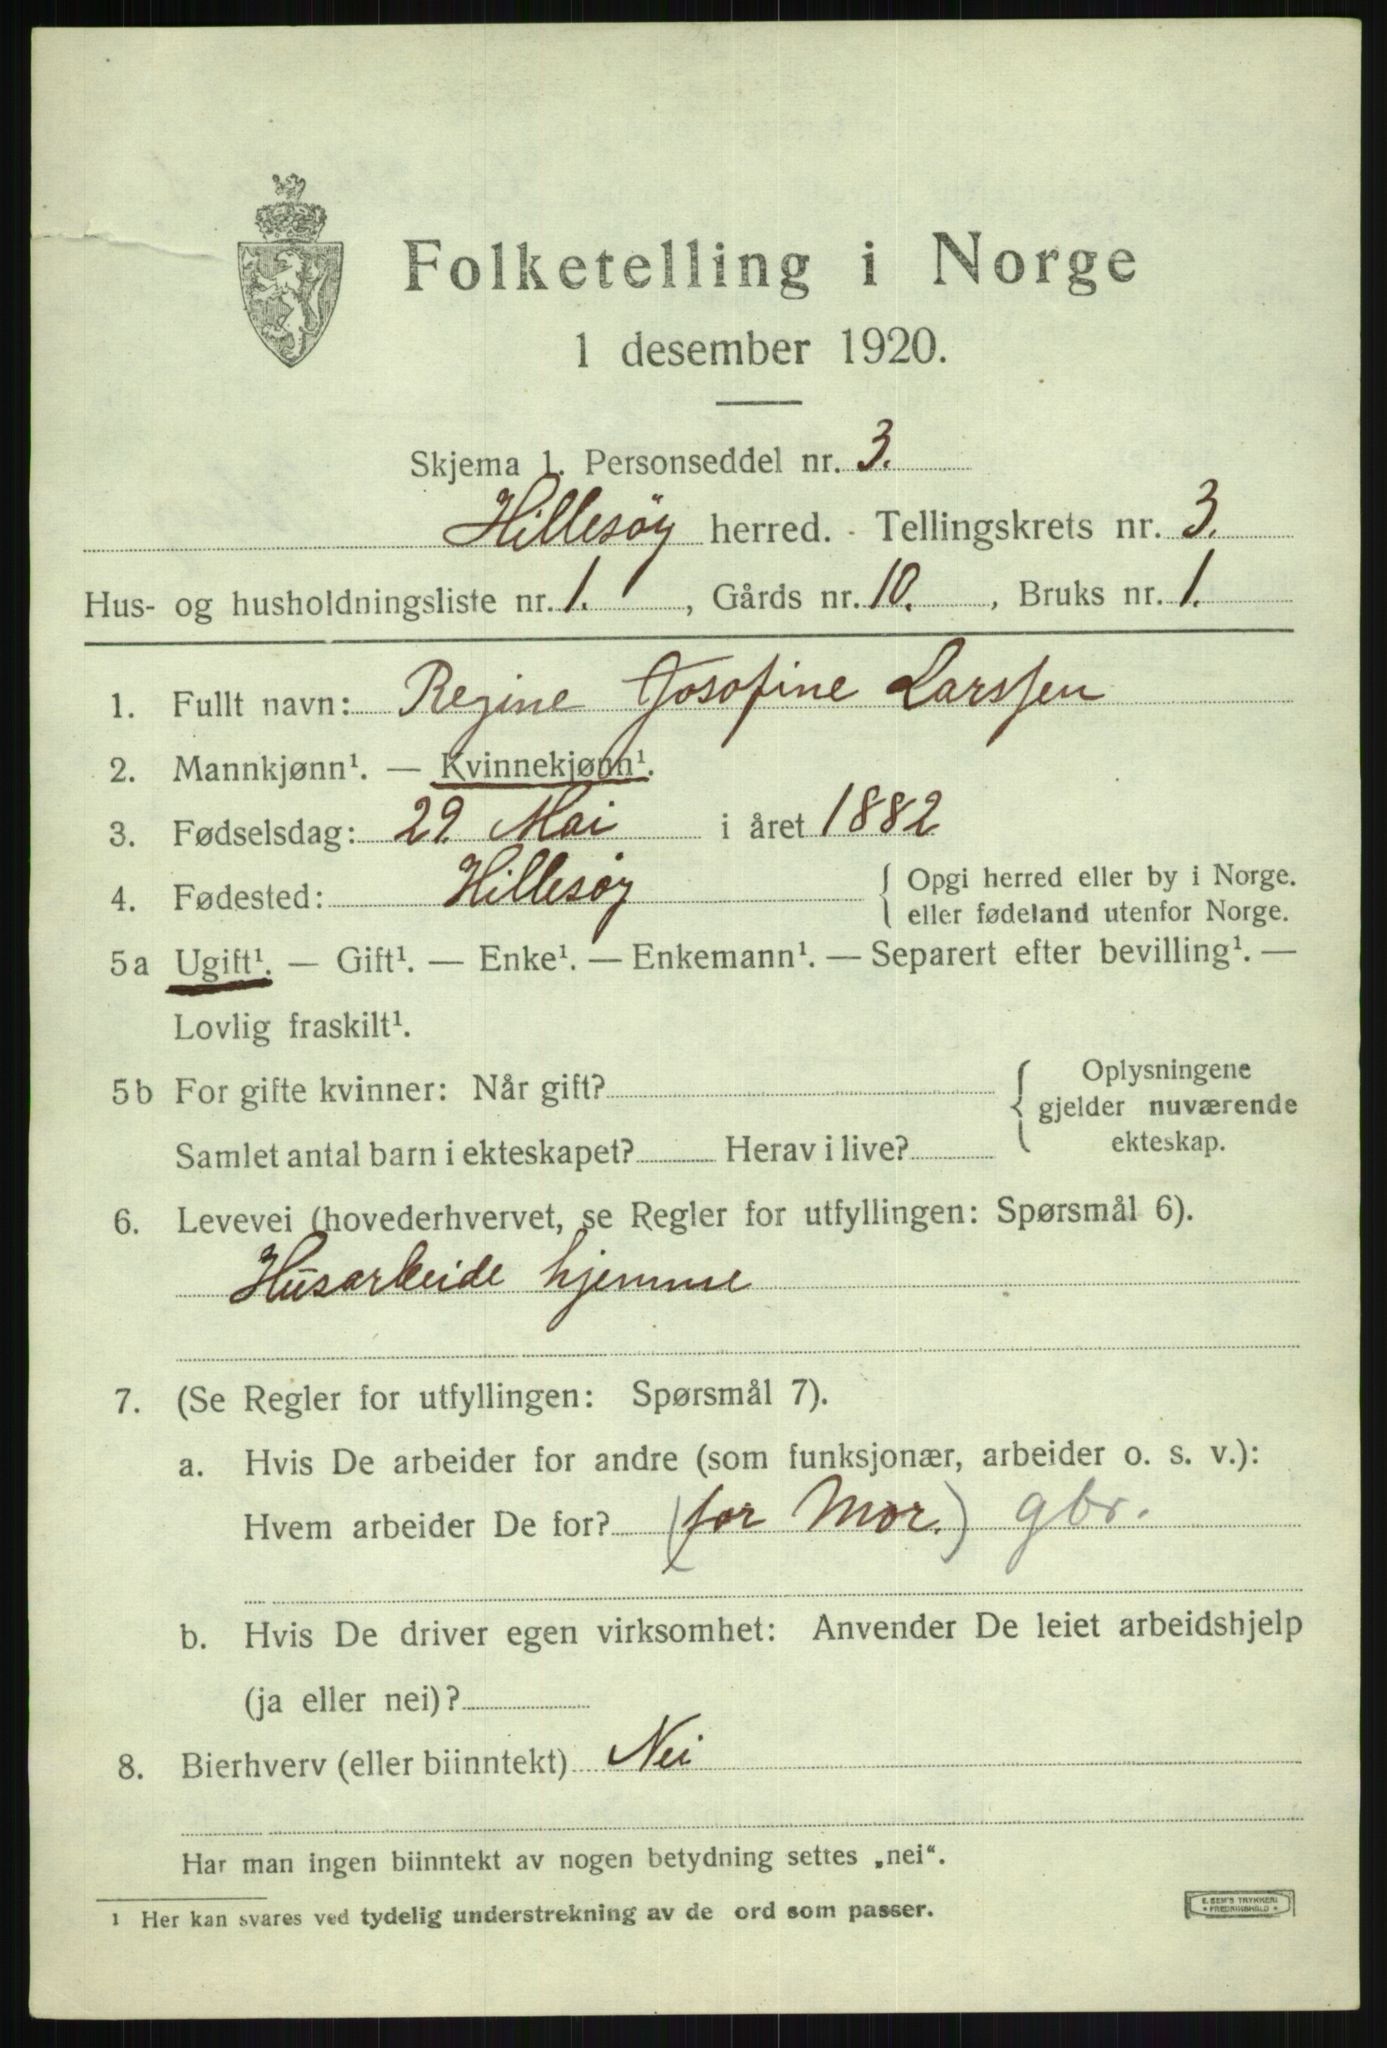 Folketelling i Norge
1 desember 1920.
Skjema 1. Personseddel nr. 3.
Hillesöy herred. - Tellingskrets nr. 3.
Hus- og husholdningsliste nr. 1. , Gårds nr. 10. , Bruks nr. 1.
1. Fullt navn: Regine Josofine Larssen
2. Mannkjønn¹. — Kvinnekjønn¹.
3. Fødselsdag: 29. Mai i året 1882
4. Fødested: Hillesöy { Opgi herred eller by i Norge.
eller fødeland utenfor Norge.
5a Ugift¹. — Gift¹. — Enke¹. — Enkemann¹. — Separert efter bevilling¹. —
Lovlig fraskilt¹.
5b For gifte kvinner: Når gift? { Oplysningene
gjelder nuværende
Samlet antal barn i ekteskapet? Herav i live? ekteskap.
6. Levevei (hovederhvervet, se Regler for utfyllingen: Spørsmål 6).
Husarbeide hjemme
7. (Se Regler for utfyllingen: Spørsmål 7).
a. Hvis De arbeider for andre (som funksjonær, arbeider o. s. v.):
Hvem arbeider De for? (for Mor.) gbr.
b. Hvis De driver egen virksomhet: Anvender De leiet arbeidshjelp
(ja eller nei)?
8. Bierhverv (eller biinntekt) Nei
Har man ingen biinntekt av nogen betydning settes „nei“.
¹ Her kan svares ved tydelig understrekning av de ord som passer.
E. SEM'S TRYKKERI
• FREDRIKSHALD •